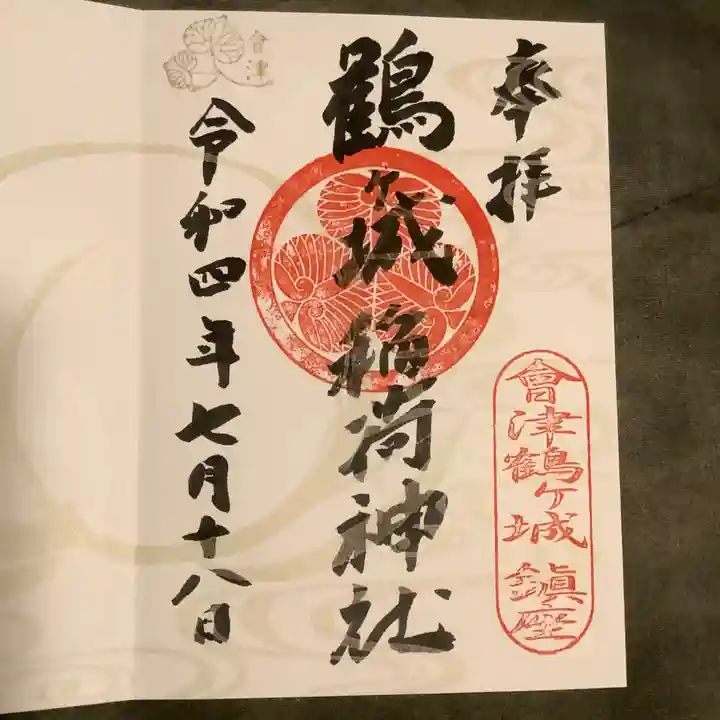 奉拝
會津鶴ヶ城鎮座
鶴ヶ城稲荷神社
會津
令和四年七月十八日